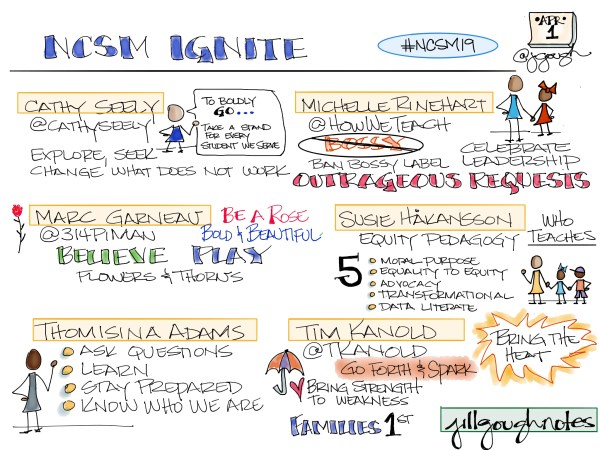 NCSM IGNITE
#NCSM19
APR
1
@jgough
CATHY SEELY
@CATHYSEELY
TO BOLDLY
GO...
TAKE A STAND
FOR EVERY
STUDENT WE SERVE
EXPLORE, SEEK
CHANGE WHAT DOES NOT WORK
MICHELLE RINEHART
@HOWWETEACH
BOSSY
BAN BOSSY LABEL
CELEBRATE
LEADERSHIP
OUTRAGEOUS REQUESTS
MARC GARNEAU
@314PIMAN
BE A ROSE
BOLD & BEAUTIFUL
BELIEVE PLAY
FLOWERS & THORN'S
SUSIE HÅKANSSON
EQUITY PEDAGOGY
WHO
TEACHES
5
MORAL PURPOSE
EQUALITY TO EQUITY
ADVOCACY
TRANSFORMATIONAL
DATA LITERATE
THOMISINA ADAMS
ASK QUESTIONS
LEARN
STAY PREPARED
KNOW WHO WE ARE
TIM KANOLD
@TKANOLD
GO FORTH & SPARK
BRING STRENGTH
TO WEAKNESS
FAMILIES 1ST
BRING THE
HEAT
jillgoughnotes